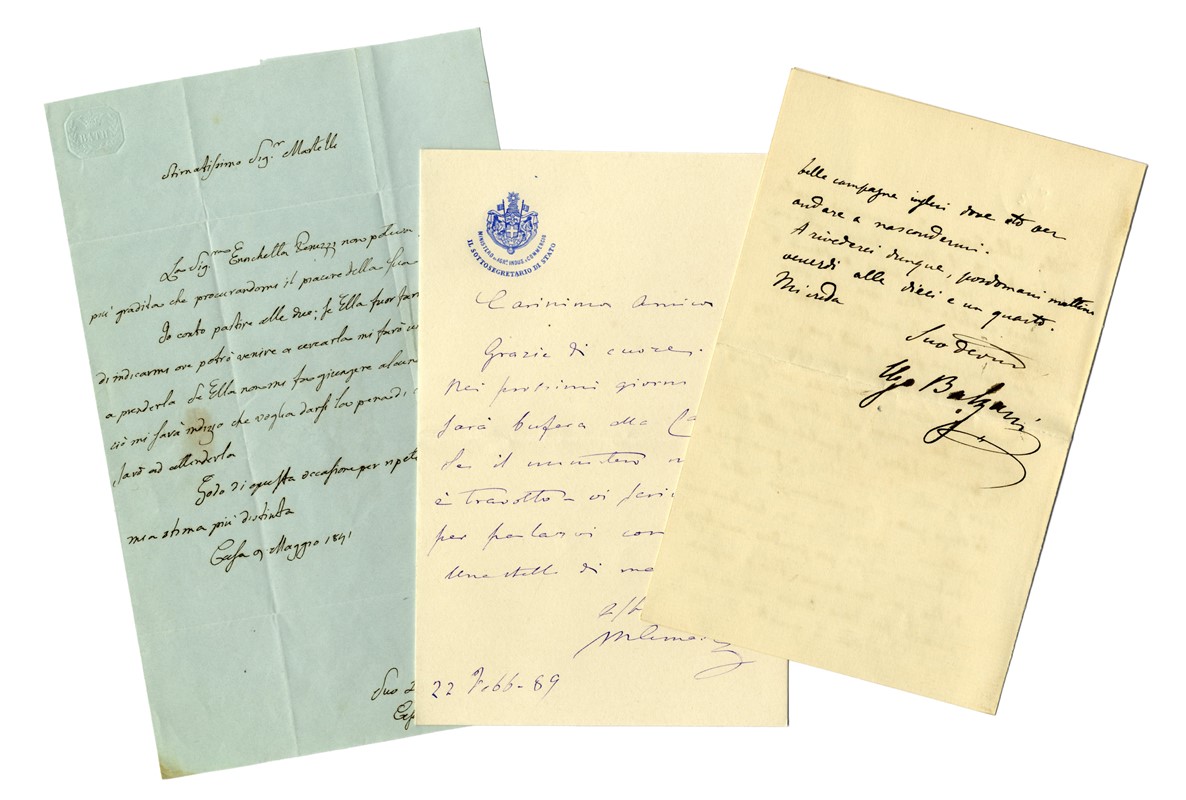 BATH
Stimatissimo Sig.r Martelli
La Sig.ma Enrichetta Peruzzi non poteva
più gradita che procurandomi il piacere della sua
Io conto partire alle due; se Ella fuor
di indicarmi ove potrò venire a cercarla mi farò
a prenderla se Ella non mi fa giungere alcun
ciò mi sarà indizio che voglia darsi la pena di
sarò ad attenderla
Godo di questa occasione per ripet
mia stima più distinta
Casa 9 Maggio 1841
Suo
MINISTERO DI AGRIC. INDUS. E COMMERCIO
IL SOTTOSEGRETARIO DI STATO
Carissimo Amico
Grazie di cuore.
Nei prossimi giorni
sarà bufera alla Ca
Se il ministero n
è travolto vi scri
per parlarvi con
Una stella di ma
22 Febb. 89
belle campagne inglesi dove sto per
andare a nascondermi.
A rivederci dunque, posdomani mattina
venerdì alle dieci e un quarto.
Mi creda
Suo devmo
Ugo Balzani